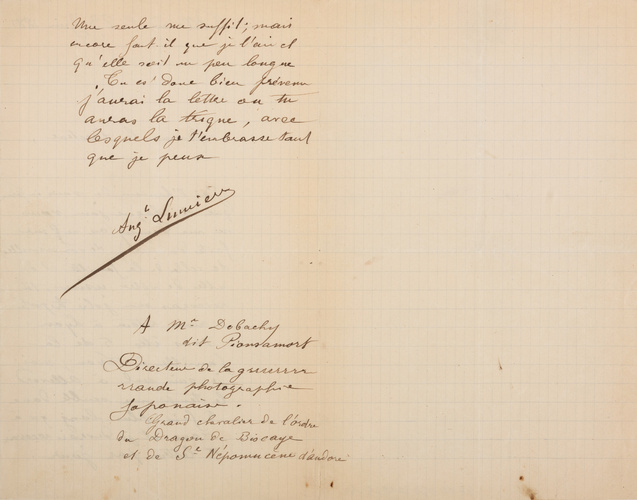 Une seule me suffit; mais
encore faut il que je l'ai et
qu'elle soit un peu longue
Tu es donc bien prévenu
j'aurai la lettre ou tu
auras la trique, avec
lesquels je t'embrasse tant
que je peux
Aug.te Lumière
A Mr Debachy
dit
Directeur de la guerrrr
rrande photographie
Japonaise.
Grand chevalier de l'ordre
du Dragon de Biscaye
et de St Népomucène d'andore